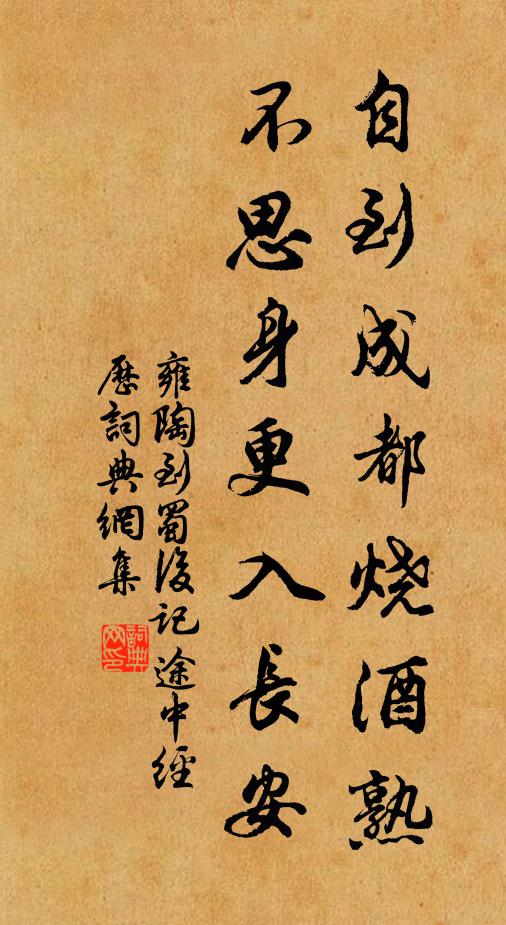 自到成都烧酒熟
不思身更入長安
雍陶到蜀後記途中經
歷詞典網集
詞典
网印